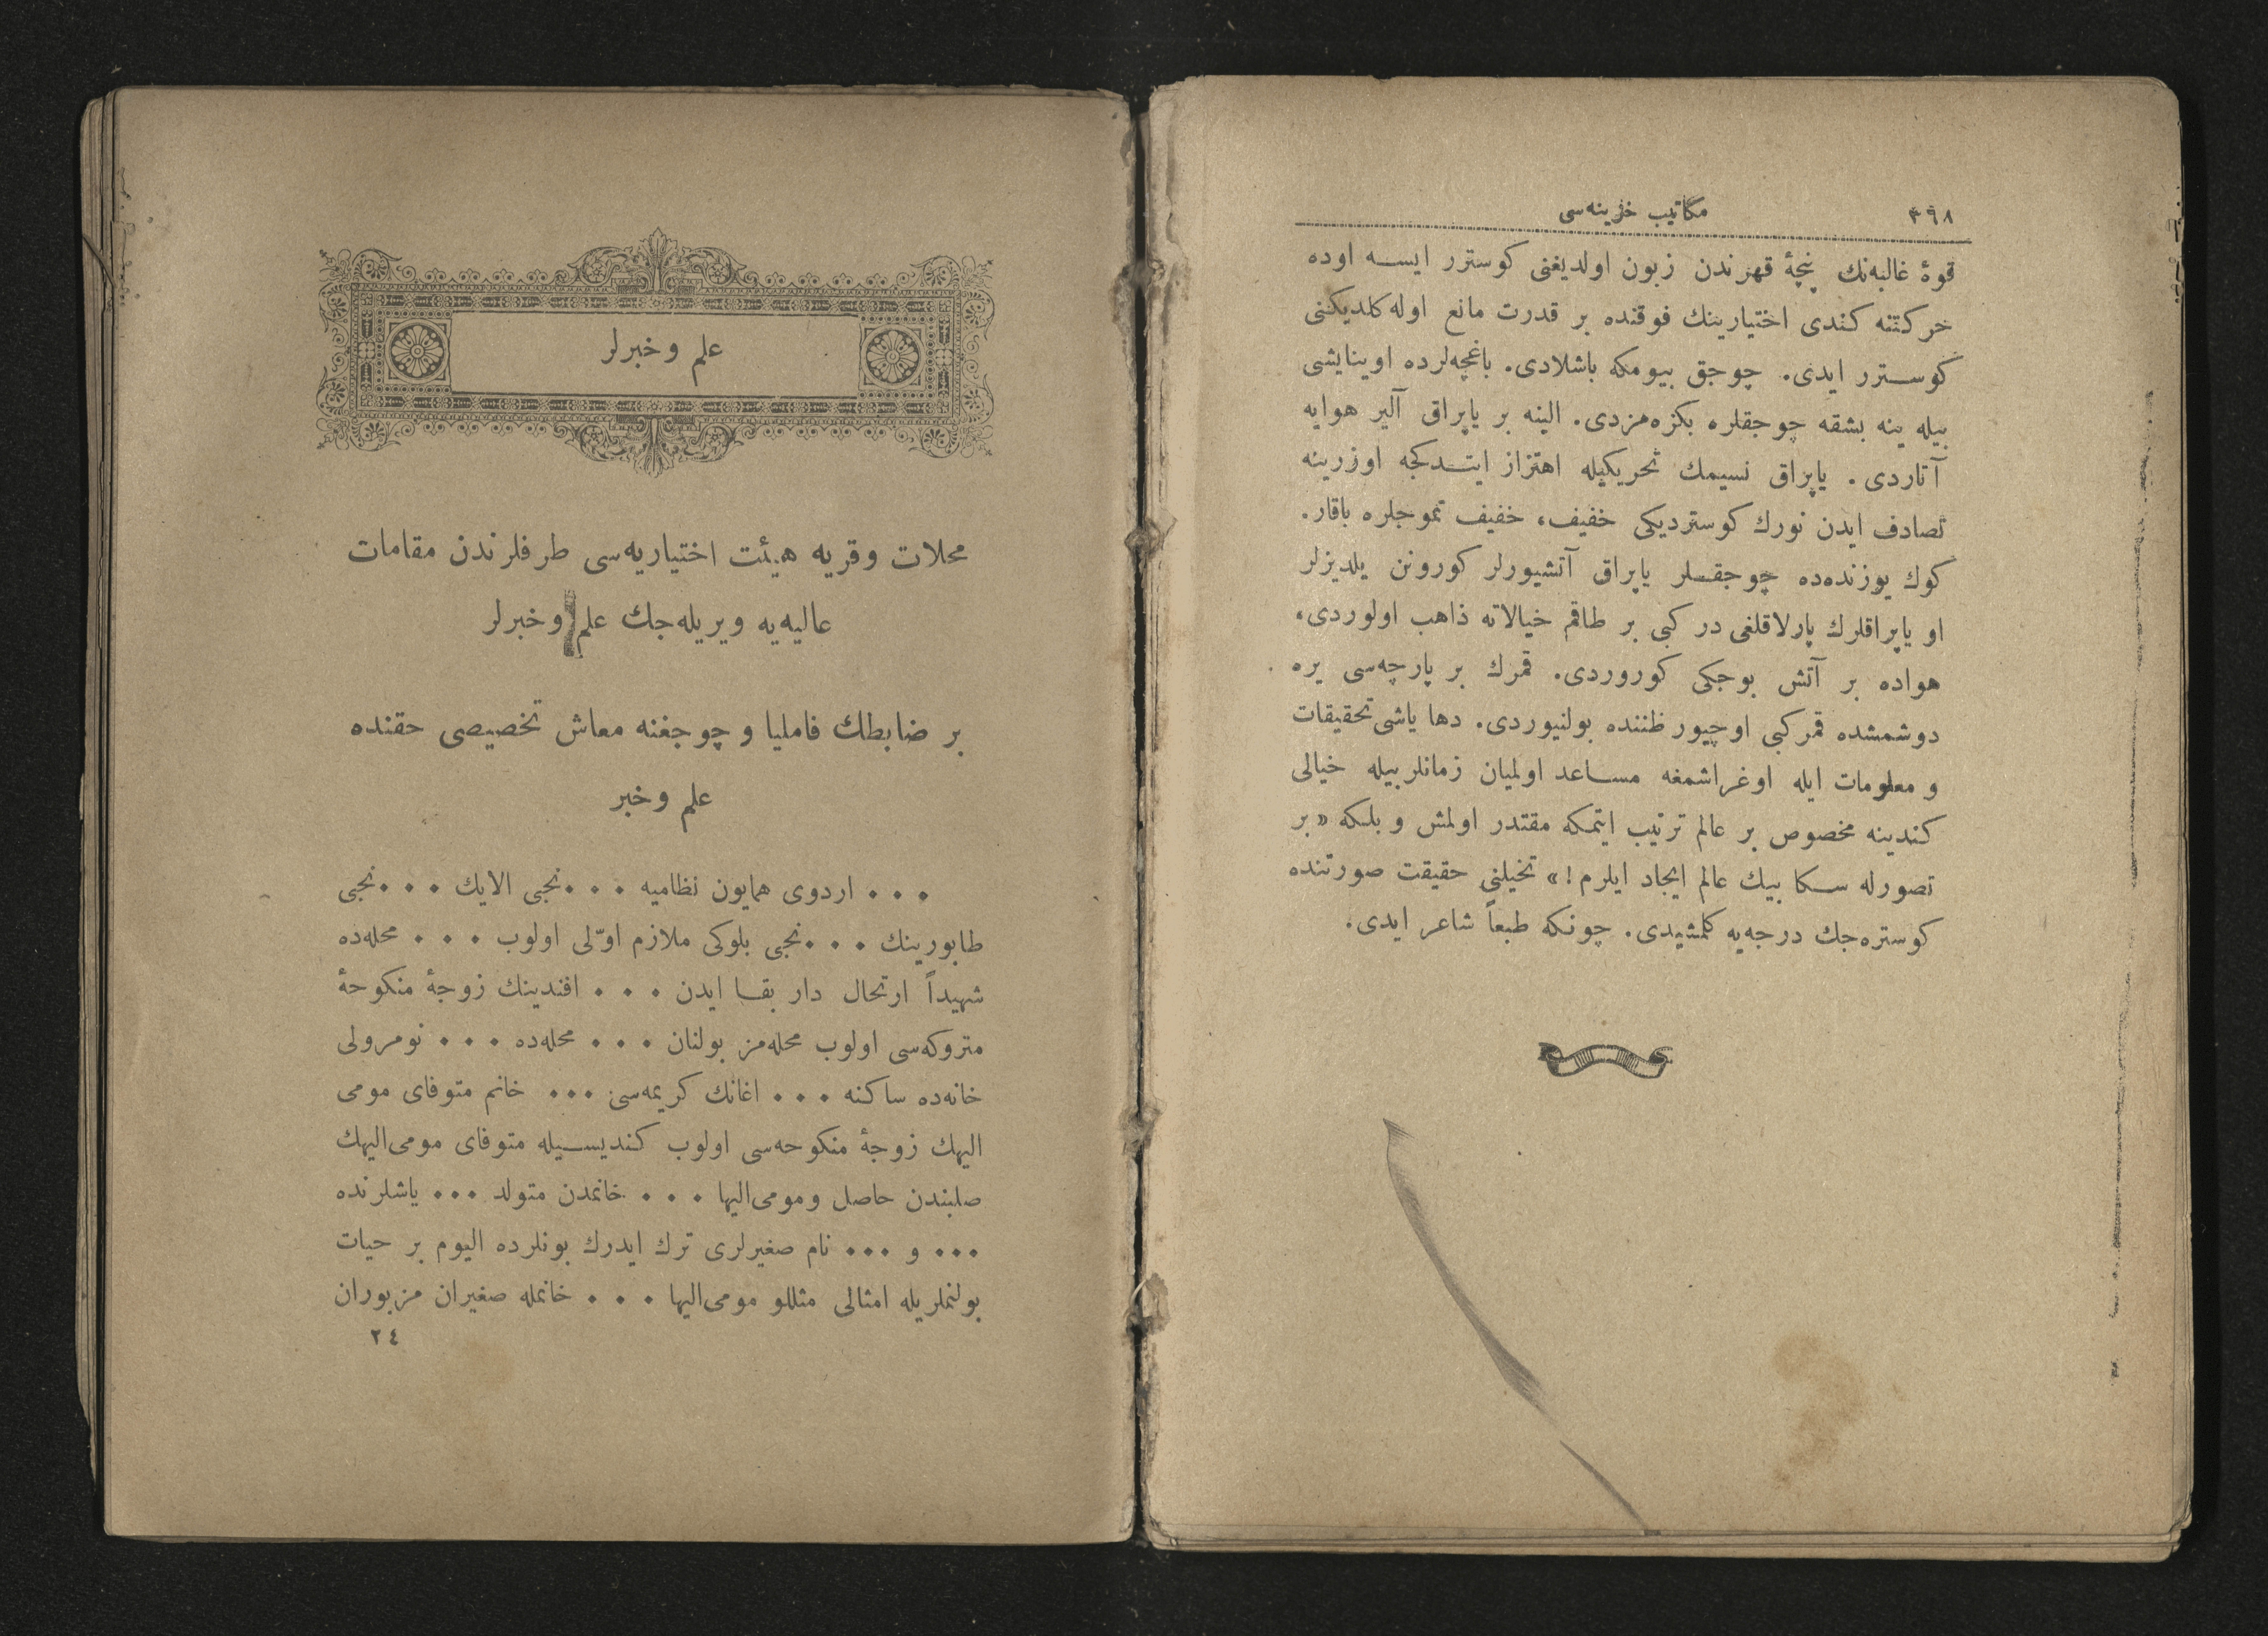 ٣٩٨
مكاتيب خزينه‌سى
قوۀ غالبه‌نك پنچۀ قهرندن زبون اولديغنى كوسترر ايسه اوده
حركتنه كندى اختيارينك فوقنده بر قدرت مانع اوله‌كلديكنى
كوسترر ايدى. چوجق بيومكه باشلادى. باغچه‌لرده اوينايشى
بيله ينه بشقه چوجقلره بكزه‌مزدى. الينه بر ياپراق آلير هوايه
آتاردى. ياپراق نسيمك تحريكيله اهتزاز ايتدكجه اوزرينه
تصادف ايدن نورك كوسترديكى خفيف، خفيف تموجلره باقار.
كوك يوزنده‌ده چوجقلر ياپراق آتشيورلر كورونن يلديزلر
او ياپراقلرك پارلاقلغى در كبى بر طاقم خيالاته ذاهب اولوردى،
هواده بر آتش بوجكى كوروردى. قمرك بر پارچه‌سى يره
دوشمشده قمر كبى اوچيور ظننده بولنيوردى. دها ياشى تحقيقات
و معلومات ايله اوغراشمغه مساعد اولميان زمانلر بيله خيالى
كندينه مخصوص بر عالم ترتيب ايتمكه مقتدر اولمش و بلكه «بر
تصورله سكا بيك عالم ايجاد ايلرم!» تخيلنى حقيقت صورتنده
كوستره‌جك درجه‌يه كلمشيدى. چونكه طبعاً شاعر ايدى.
علم وخبرلر
محلات وقريه هيئت اختياريه‌سى طرفلرندن مقامات
عاليه‌يه ويريله‌جك علم وخبرلر
بر ضابطك فامليا و چوجغنه معاش تخصيصى حقنده
علم وخبر
• • • اردوى همايون نظاميه • • •نجى الايك • • •نجى
طابورينك • • •نجى بلوكى ملازم اوّلى اولوب • • • محله‌ده
شهيداً ارتحال دار بقا ايدن • • • افندينك زوجۀ منكوحۀ
متروكه‌سى اولوب محله‌مز بولنان • • • محله‌ده • • • نومرولى
خانه‌ده ساكنه • • • اغانك كريمه‌سى • • • خانم متوفاى مومى
اليهك زوجۀ منكوحه‌سى اولوب كنديسيله متوفاى مومى‌اليهك
صلبندن حاصل ومومى‌اليها • • • خانمدن متولد • • • ياشلرنده
• • • و • • • نام صغيرلرى ترك ايدرك بونلرده اليوم بر حيات
بولنملريله امثالى مثللو مومى‌اليها • • • خانمله صغيران مزبوران
٢٤